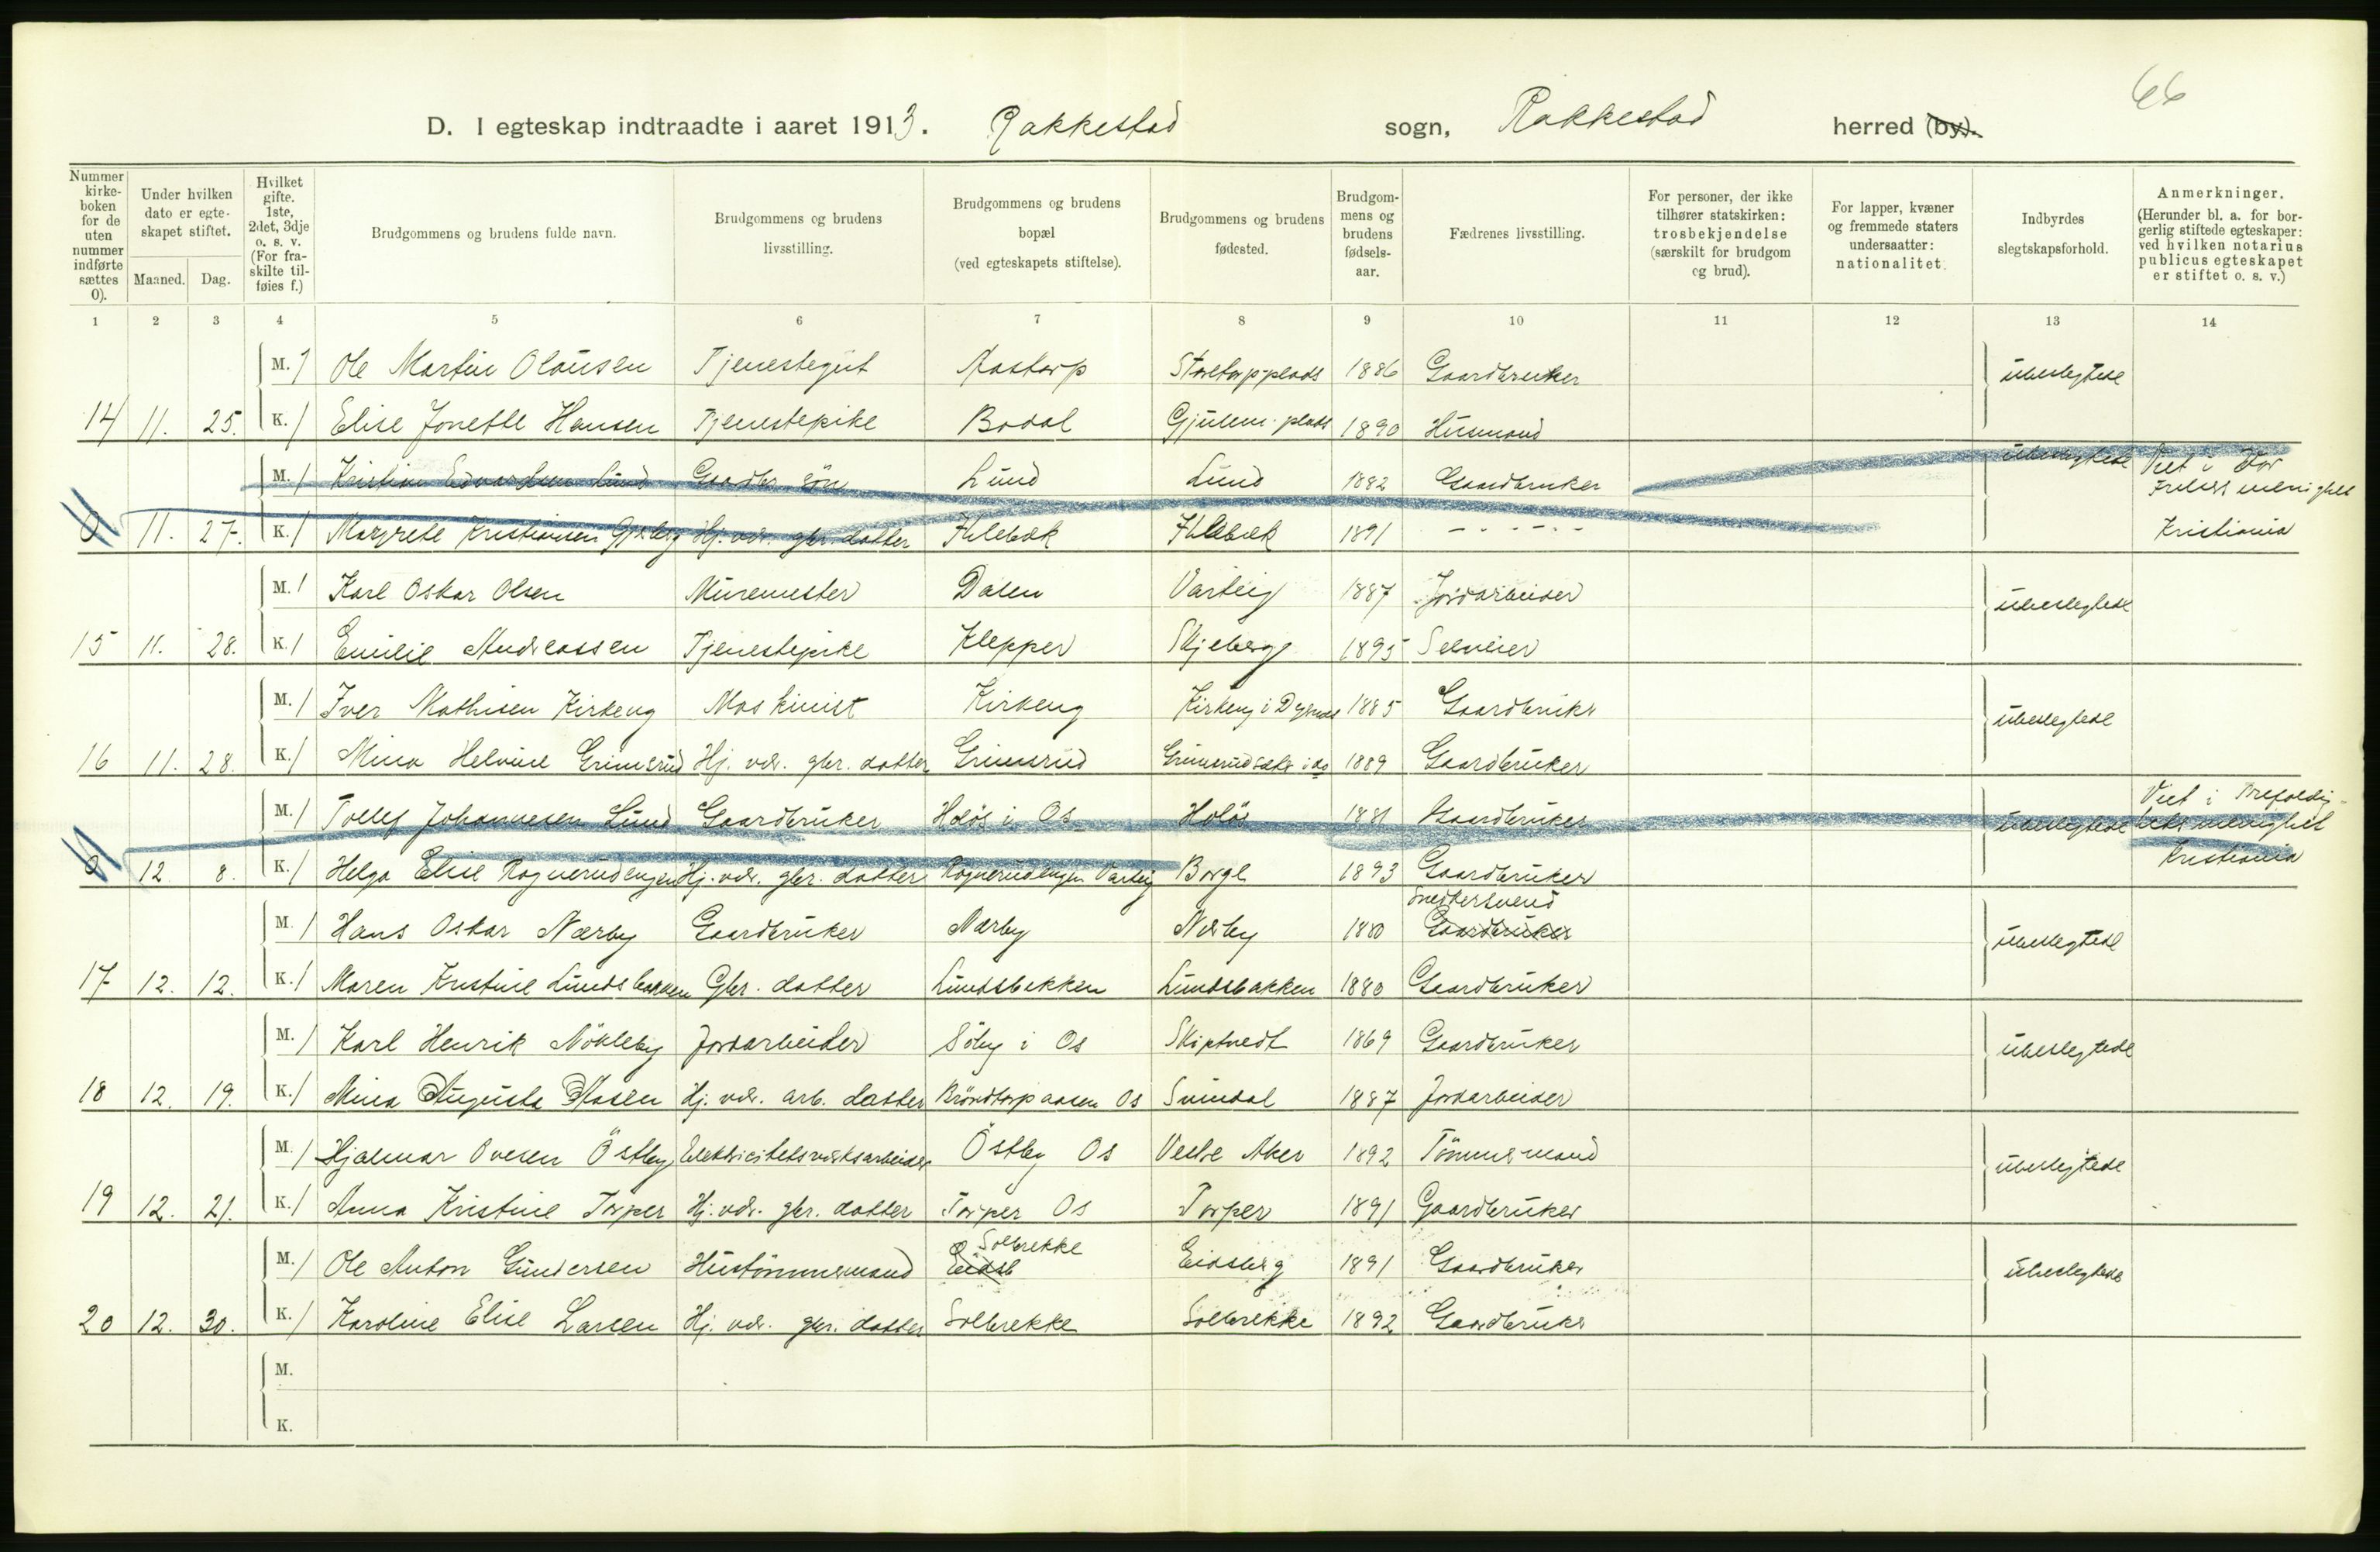 66
D. I egteskap indtraadte i aaret 1913. Rakkestad sogn, Rakkestad herred (by).
Nummer kirke-boken for de uten nummer indførte sættes 0).
Under hvilken dato er egte-skapet stiftet.
Maaned. Dag.
Hvilket gifte. 1ste, 2det, 3dje o. s. v. (For fra-skilte til-føies f.)
Brudgommens og brudens fulde navn.
Brudgommens og brudens livsstilling.
Brudgommens og brudens bopæl (ved egteskapets stiftelse).
Brudgommens og brudens fødested.
Brudgom-mens og brudens fødsels-aar.
Fædrenes livsstilling.
For personer, der ikke tilhører statskirken: trosbekjendelse (særskilt for brudgom og brud).
For lapper, kvæner og fremmede staters undersaatter: nationalitet.
Indbyrdes slegtskapsforhold.
Anmerkninger. (Herunder bl. a. for bor-gerlig stiftede egteskaper: ved hvilken notarius publicus egteskapet er stiftet o. s. v.)
1 2 3 4 5 6 7 8 9 10 11 12 13 14
M. 1 Ole Martin Olausen Tjenestegut Aastorp Storetorp-plads 1886 Gaardbruker ubeslegtede
14 11. 25. K. 1 Elise Jonette Hansen Tjenestepike Bodal Gjulem-plads 1890 Husmand
M. 1 Kristian Edvardsen Lund Gaardbr. søn Lund Lund 1882 Gaardbruker ubeslegtede Viet i Vor
Frelsers menighet
0 11. 27. K. 1 Margrete Kristiansen Hj. vær. gbr. datter Ihlebæk Ihlebæk 1891 - - - - - - Kristiania
M. 1 Karl Oskar Olsen Muremester Dalen Varteig 1887 Jordarbeider ubeslegtede
15 11. 28. K. 1 Emilie Andreassen Tjenestepike Klepper Skjeberg 1895 Selveier
M. 1 Iver Mathisen Kirkeng Maskinist Kirkeng Kirkeng i Degernes 1885 Gaardbruker ubeslegtede
16 11. 28. K. 1 Mina Helvine Grimsrud Hj. vær. gbr. datter Grimsrud Grimsrudsæter i do 1889 Gaardbruker
M. 1 Tollef Johannesen Lund Gaardbruker Holøs i Os Holøs 1881 Gaardbruker ubeslegtede Viet i Trefoldig-
heds menighet
0 12 8. K. 1 Helga Elise Rognerudengen Hj. vær. gbr. datter Rognerudengen Varteig Borge 1893 Gaardbruker Kristiania
Snedkersvend
M. 1 Hans Oskar Nærby Gaardbruker Nærby Nærby 1880 Gaardbruker ubeslegtede
17 12. 12. K. 1 Maren Kristine Lundsbakken Gbr. datter Lundsbakken Lundsbakken 1880 Gaardbruker
M. 1 Karl Henrik Nökleby Jordarbeider Söby i Os Skiptvedt 1869 Gaardbruker ubeslegtede
18 12. 19. K. 1 Mina Augusta Aasen Hj. vær. arb. datter Bröndtorpaasen Os Svindal 1887 Jordarbeider
M. 1 Hjalmar Ovesen Östby Elektricitetsverksarbeider Östby Os Vestre Aker 1892 Tömmermand ubeslegtede
19 12. 21. K. 1 Anna Kristine Torper Hj. vær. gbr. datter Torper Os Torper 1891 Gaardbruker
Solbrekke
M. 1 Ole Anton Gundersen Hustömmermand Eidsb Eidsberg 1891 Gaardbruker ubeslegtede
20 12. 30. K. 1 Karoline Elise Larsen Hj. vær. gbr. datter Solbrekke Solbrekke 1892 Gaardbruker
M.
K.